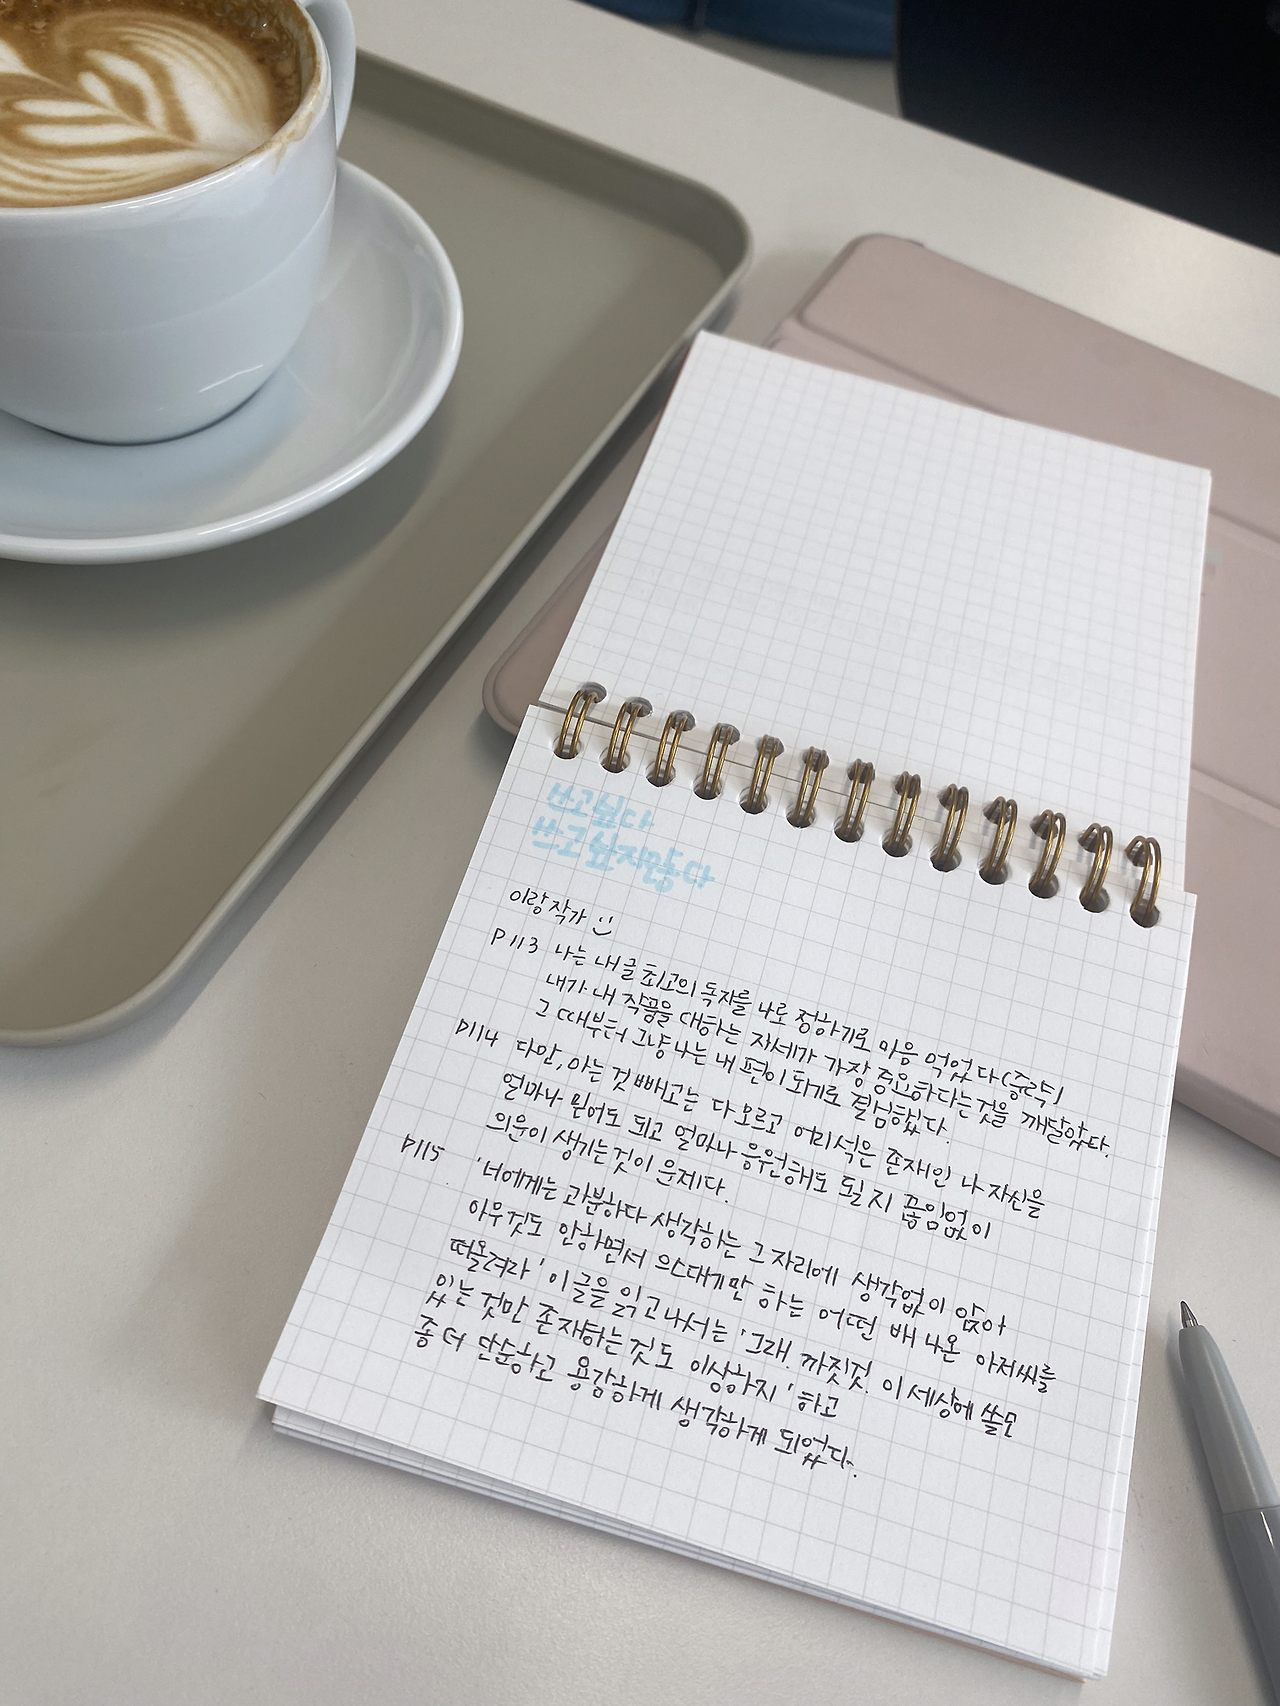 쓰고싶다
쓰고싶지않다
이랑작가
P113 나는 내 글 최고의 독자를 나로 정하기로 마음 먹었다(중략)
내가 내 작품을 대하는 자세가 가장 중요하다는것을 깨달았다.
그 때부터 그냥 나는 내 편이 되기로 결심했다.
P114 다만, 아는 것 빼고는 다 모르고 어리석은 존재인 나 자신을
얼마나 믿어도 되고 얼마나 응원해도 될지 끊임없이
의문이 생기는것이 문제다.
P115 '너에게는 과분하다 생각하는 그 자리에 생각없이 앉아
아무것도 안하면서 으스대기만 하는 어떤 배 나온 아저씨를
떠올려라' 이 글을 읽고나서는 '그래. 까짓것. 이 세상에 쓸모
있는 것만 존재하는 것도 이상하지' 하고
좀 더 단순하고 용감하게 생각하게 되었다.